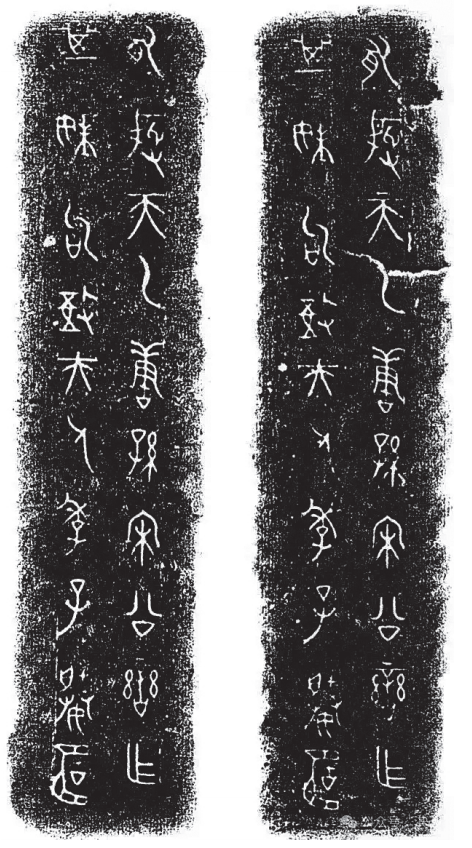 有殷天乙唐孫宋公䜌乍
其妹句敔夫人季子媵簠
有殷天乙唐孫宋公䜌乍
其妹句敔夫人季子媵簠